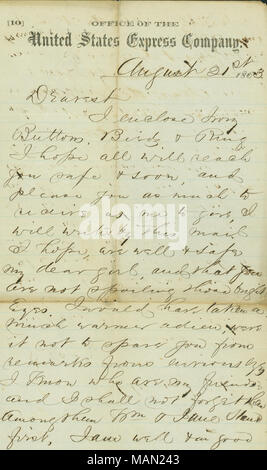 [10]
OFFICE OF THE
United States Express Company,
August 21st 1863
Dearest
I enclose Ivory
Buttons, Bird, & Ring
I hope all will reach
you safe & soon, and
please you as much to
receive as me to give, I
will write by this mail
I hope, are well & safe
my dear girl, and that you
are not spoiling those bright
eyes. I would have taken a
much warmer adieu, were
it not to spare you from
remarks from
I know who are my friends
and I shall not forget them
among them Tom & Jane
first, I am well & in good
alamy
Image ID: MAN243
www.alamy.com